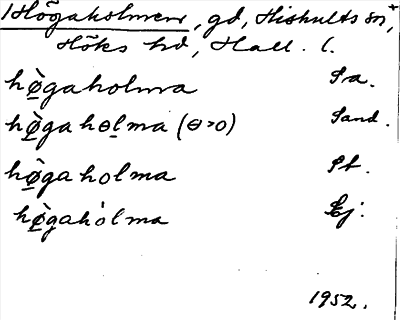 Högaholmen, gd, Hishults sn,
Höks hd, Hall. l.
hø̀gahol̵ma Sra.
hø̀gahɵlma (ɵ>o) Sand.
hø̀gaholma St.
hø̀gahólma Ej.
1952.